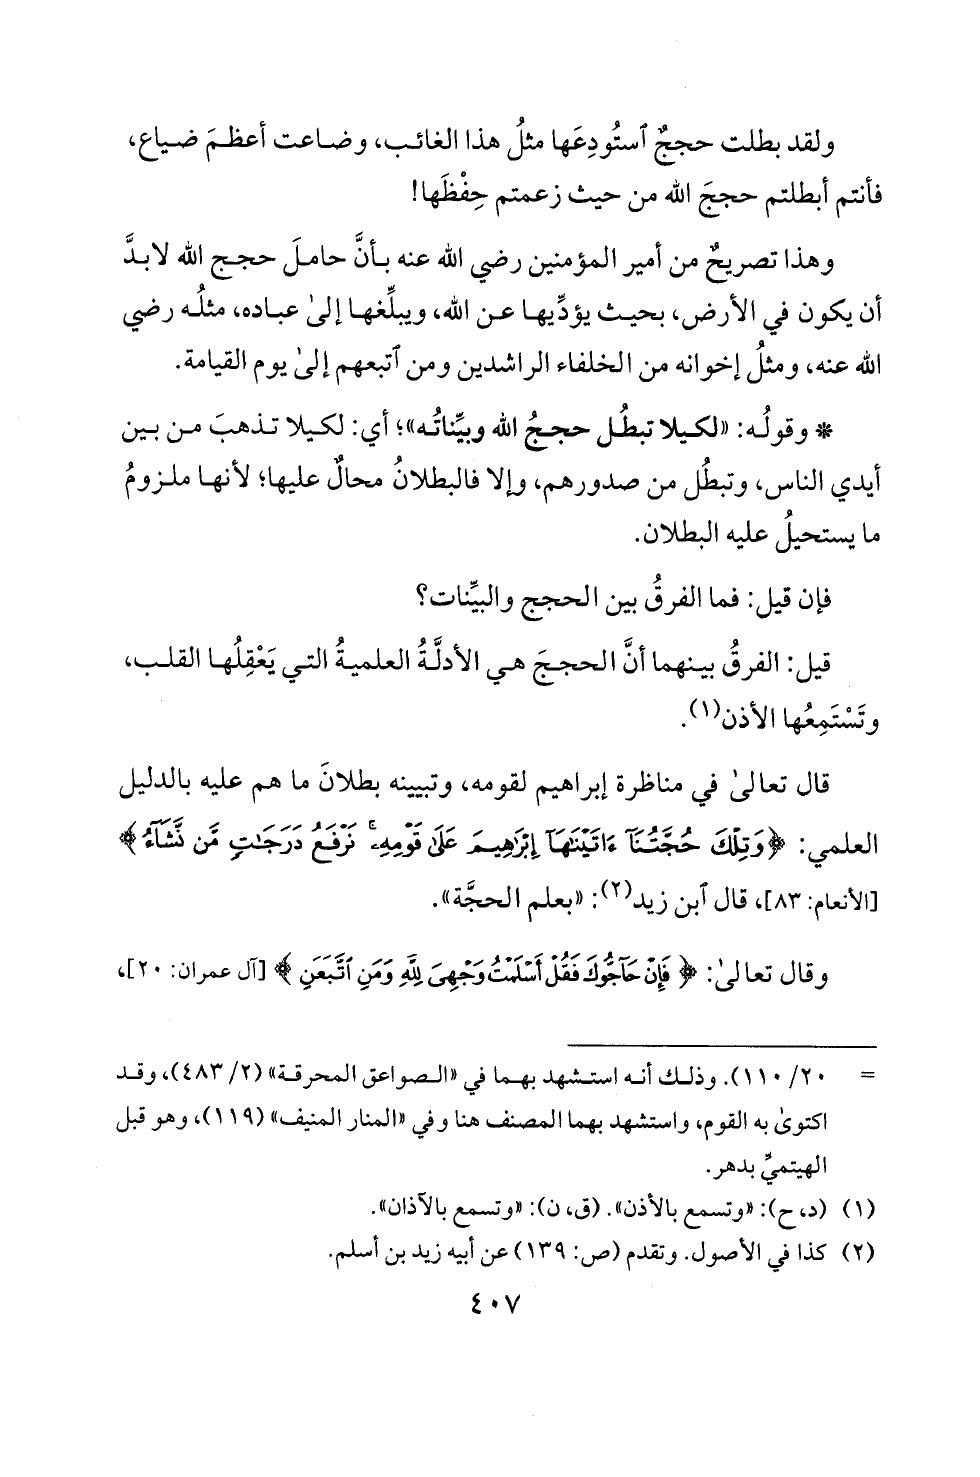 ولقد بطلت حججٌ ٱستُودِعَها مثلُ هذا الغائب، وضاعت أعظمَ ضياع،
فأنتم أبطلتم حججَ الله من حيث زعمتم حِفْظَها!
وهذا تصريحٌ من أمير المؤمنين رضي الله عنه بأنَّ حاملَ حجج الله لابدَّ
أن يكون في الأرض، بحيث يؤدِّيها عن الله، ويبلِّغها إلىٰ عباده، مثلُه رضي
الله عنه، ومثلُ إخوانه من الخلفاء الراشدين ومن ٱتبعهم إلىٰ يوم القيامة.
* وقولُه: «لكيلا تبطُل حججُ الله وبيِّناتُه»؛ أي: لكيلا تذهبَ من بين
أيدي الناس، وتبطُل من صدورهم، وإلا فالبطلانُ محالٌ عليها؛ لأنها ملزومُ
ما يستحيلُ عليه البطلان.
فإن قيل: فما الفرقُ بين الحجج والبيِّنات؟
قيل: الفرقُ بينهما أنَّ الحججَ هي الأدلَّةُ العلميةُ التي يَعْقِلُها القلب،
وتَسْتَمِعُها الأذن(١).
قال تعالىٰ في مناظرة إبراهيم لقومه، وتبيينه بطلانَ ما هم عليه بالدليل
العلمي: ﴿وَتِلْكَ حُجَّتُنَآ ءَاتَيْنَٰهَآ إِبْرَٰهِيمَ عَلَىٰ قَوْمِهِۦ ۚ نَرْفَعُ دَرَجَٰتٍ مَّن نَّشَآءُ﴾
[الأنعام: ٨٣]، قال ٱبن زيد(٢): «بعلم الحجَّة».
وقال تعالىٰ: ﴿فَإِنْ حَآجُّوكَ فَقُلْ أَسْلَمْتُ وَجْهِىَ لِلَّهِ وَمَنِ ٱتَّبَعَنِ﴾ [آل عمران: ٢٠]،
= ٢٠/ ١١٠). وذلك أنه استشهد بهما في «الصواعق المحرقة» (٢/ ٤٨٣)، وقد
اكتوىٰ به القوم، واستشهد بهما المصنف هنا وفي «المنار المنيف» (١١٩)، وهو قبل
الهيتميِّ بدهر.
(١) (د، ح): «وتسمع بالأذن». (ق، ن): «وتسمع بالآذان».
(٢) كذا في الأصول. وتقدم (ص: ١٣٩) عن أبيه زيد بن أسلم.
٤٠٧